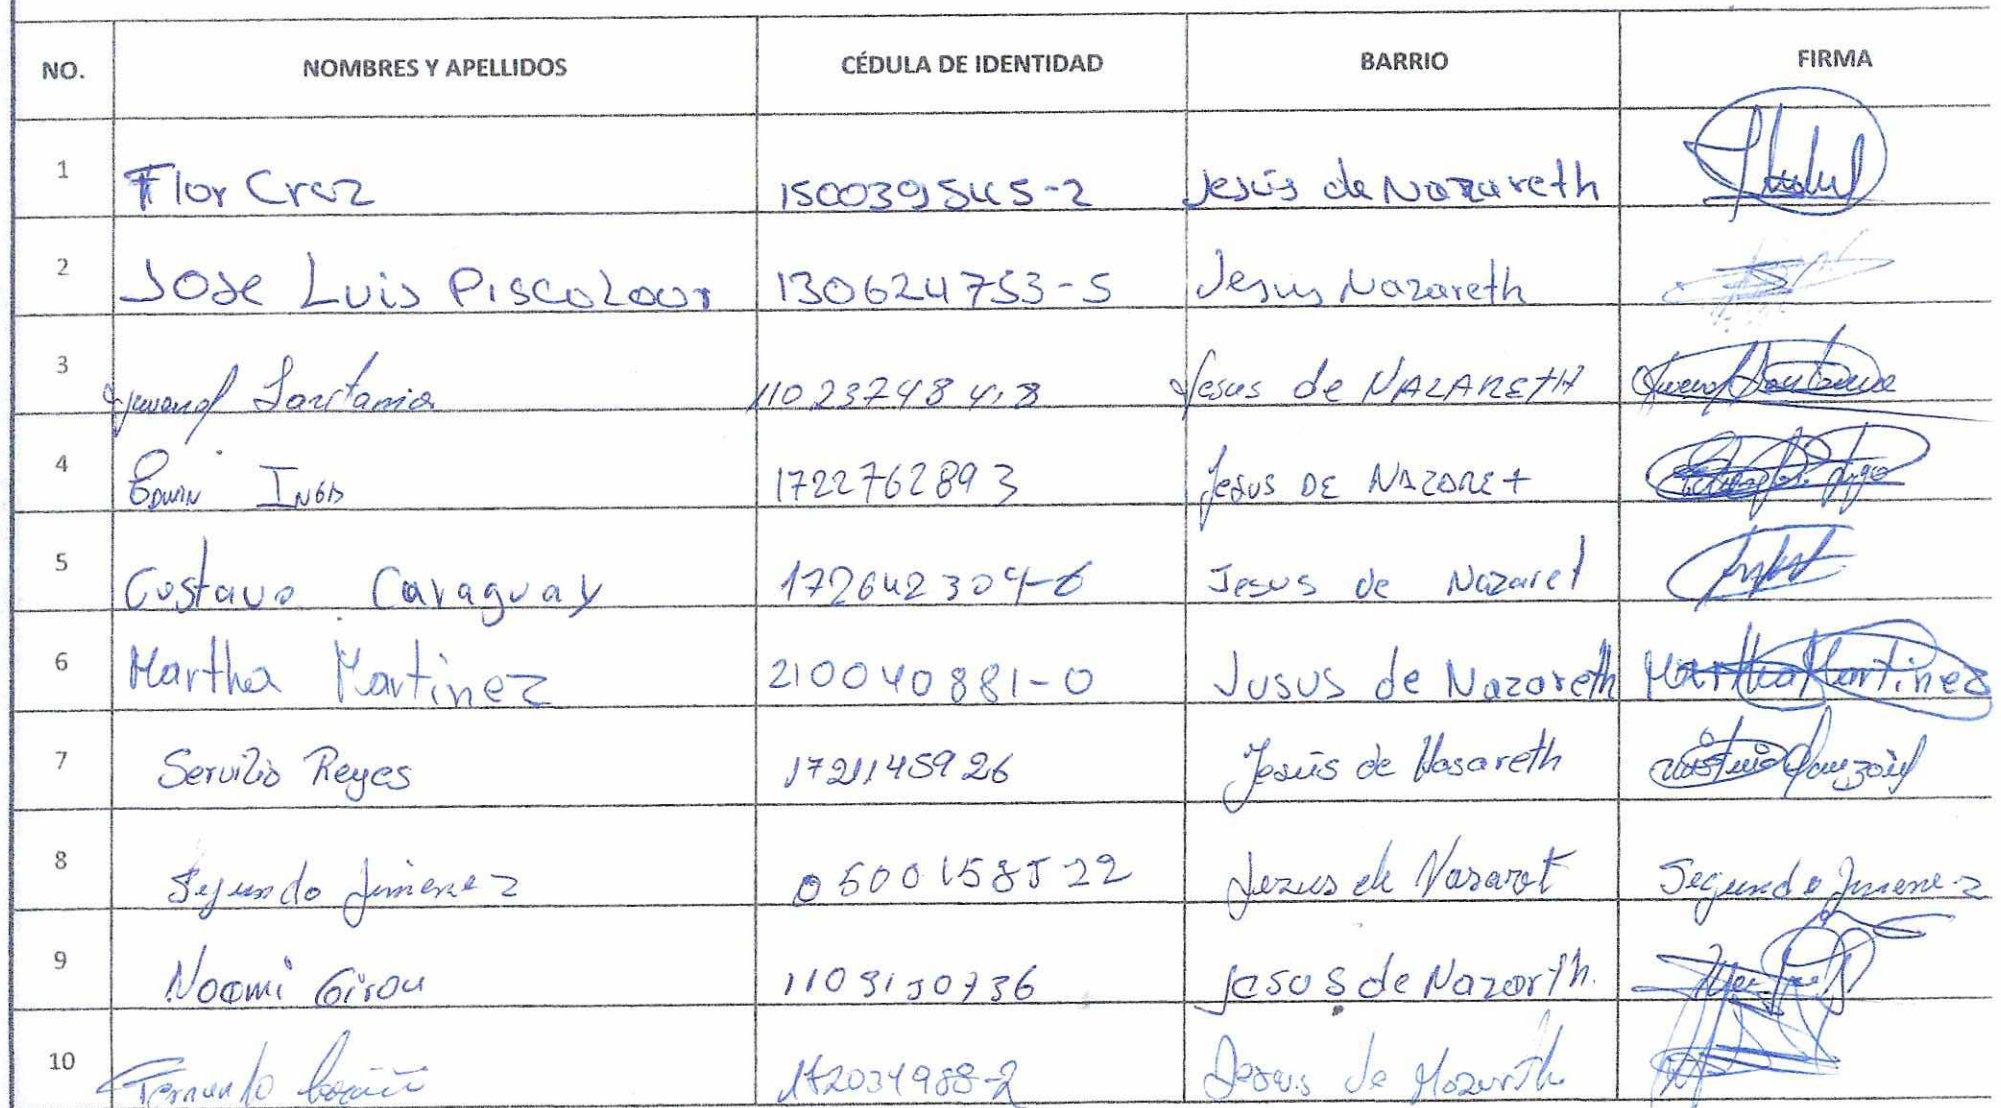 NO. NOMBRES Y APELLIDOS CÉDULA DE IDENTIDAD BARRIO FIRMA
1 Flor Cruz 150039545-2 Jesús de Nazareth
2 Jose Luis 130624753-5 Jesus Nazareth
3 Juvenal Santania 110237484-8 Jesus de NAZARETH
4 EDWIN INGA 1722762893 Jesus DE NAZARET
5 Gustavo Caraguay 172642304-6 Jesus de Nazaret
6 Martha Martinez 210040881-0 Jusus de Nazareth Martha Martinez
7 Servilio Reyes 1721145926 Jesús de Nasareth
8 Segundo Jimenez 0500158522 Jezus de Nazaret Segundo Jimenez
9 Noemi Girou Jesus de Nazarth.
10 Fernando 172034988-2 Jesus de Nazareth